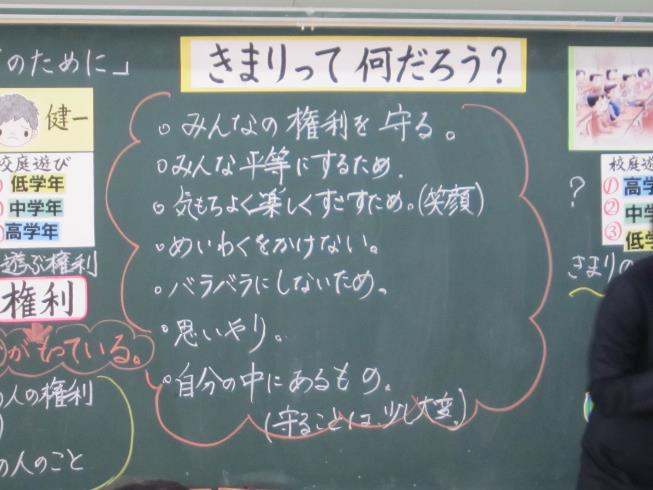 のために」
きまりって何だろう？
健一
校庭遊び
低学年
中学年
高学年
遊ぶ権利
権利
がもっている。
の人の権利
の人のこと
。みんなの権利を守る。
。みんな平等にするため.
。気もちよく楽しくすごすため。(笑顔)
。めいわくをかけない。
。バラバラにしないため。
。思いやり。
。自分の中にあるもの。
(守ることは、少し大変)
校庭遊
① 高学
② 中学
③ 低学
？
きまりの